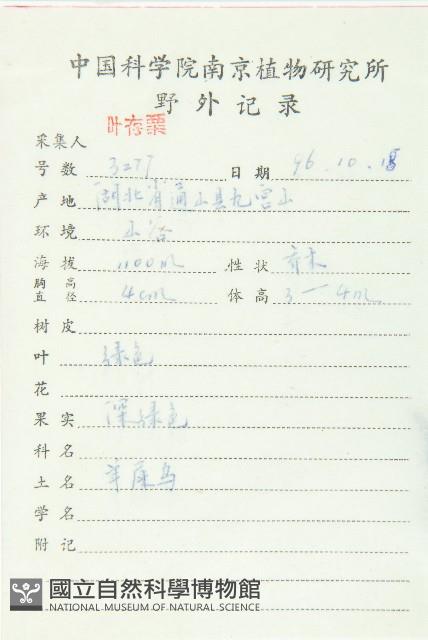 中国科学院南京植物研究所
野外记录
采集人 叶存粟
号数 3277 日期 96.10.18
产地 湖北省通山县九宫山
环境 山谷
海拔 1100m 性状 乔木
胸高直径 4cm 体高 3—4m
树皮
叶 绿色
花
果实 深绿色
科名
土名
学名
附记
國立自然科學博物館
NATIONAL MUSEUM OF NATURAL SCIENCE